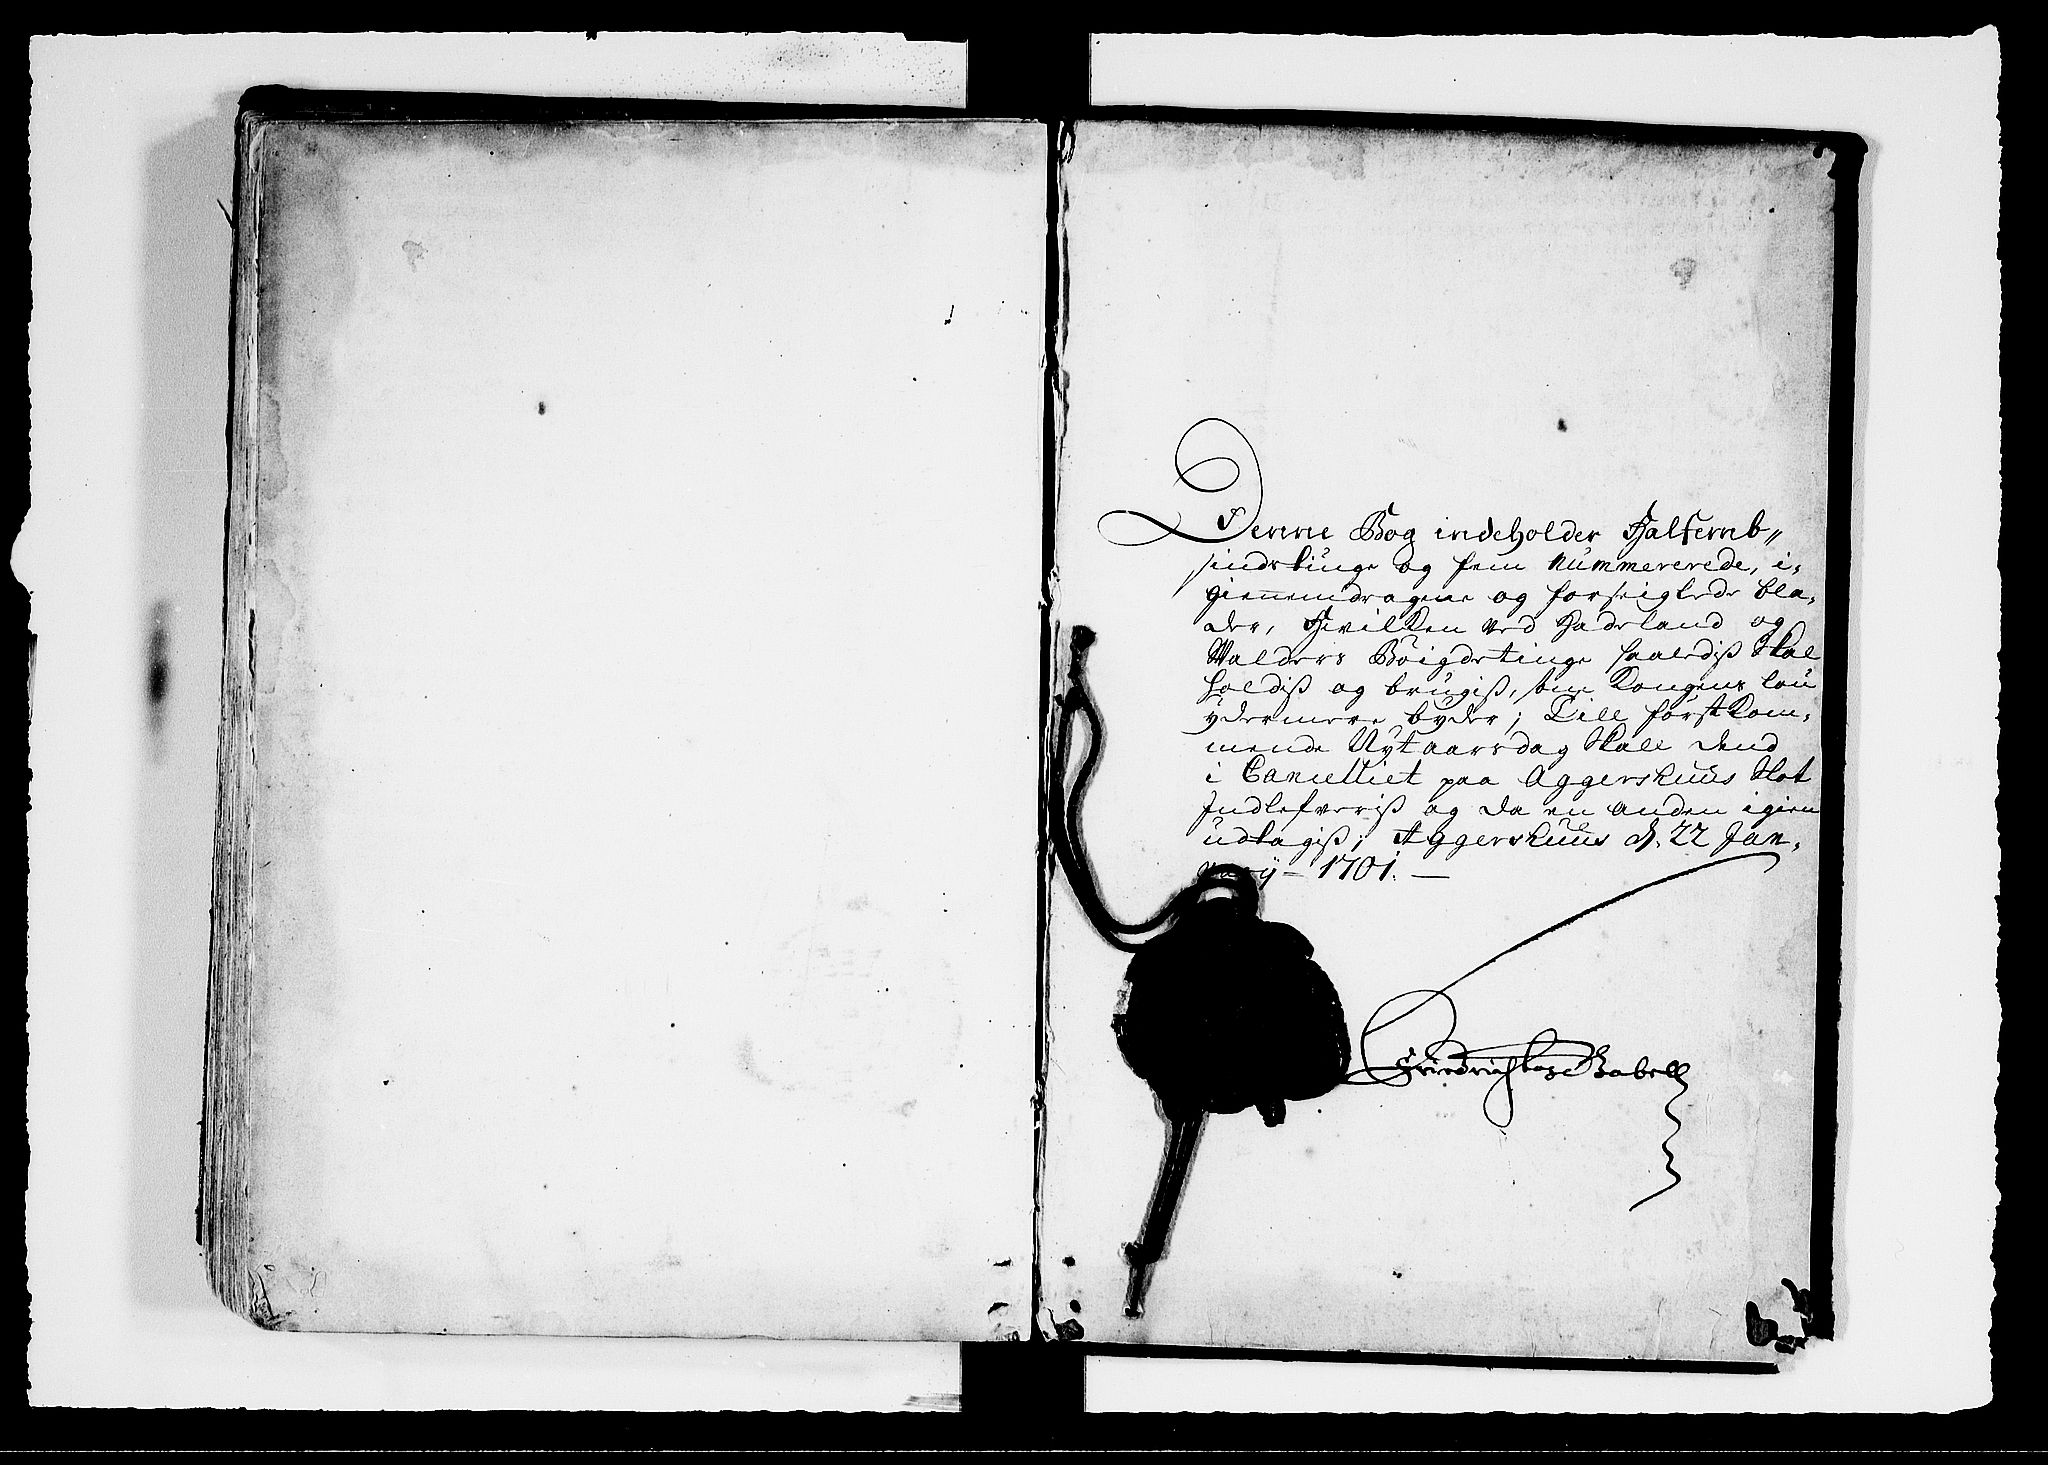 Denne Bog indeholder Halfemb„
sindstiuge og fem Nummererede, i„
giennemdragne og forseiglede bla„
der, Hvilken ved Hadeland og
Walders Böigdetinge saaledis Skal
holdis og brugis, som Kongens lou
ydermere byder; Till förstkom„
mende Nytaarsdag Skall dend
i Cancelliet paa Aggershuus Slot
Indlefveris og da en anden igien
udtagis; Aggershuus d. 22 Jan„
uary – 1701. —
Friedrich Gabell